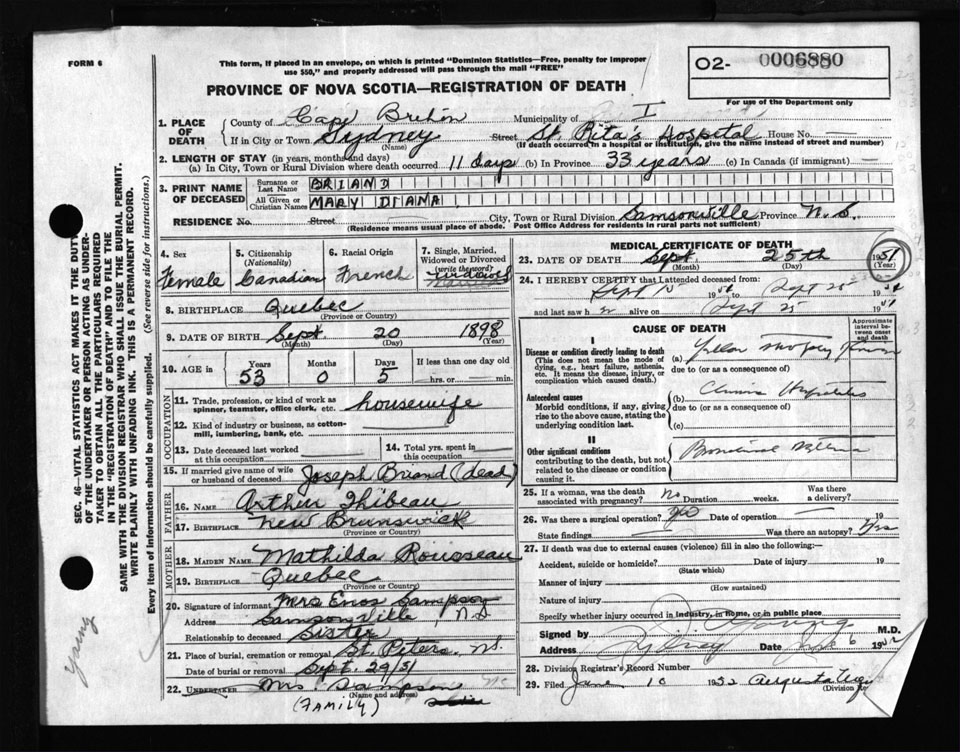 FORM 6
This form, if placed in an envelope, on which is printed "Dominion Statistics—Free, penalty for improper
use $50," and properly addressed will pass through the mail "FREE"
O2- 0006880
For use of the Department only
PROVINCE OF NOVA SCOTIA—REGISTRATION OF DEATH
1. PLACE OF DEATH
County of Cape Breton Municipality of I
If in City or Town Sydney (Name) Street St. Rita's Hospital House No. —
(If death occurred in a hospital or institution, give the name instead of street and number)
2. LENGTH OF STAY (in years, months and days)
(a) In City, Town or Rural Division where death occurred 11 days (b) In Province 33 years (c) In Canada (if immigrant) —
3. PRINT NAME OF DECEASED
Surname or Last Name BRIAND
All Given or Christian Names MARY DIANA
RESIDENCE No. Street City, Town or Rural Division Samsonville Province N.S.
(Residence means usual place of abode. Post Office Address for residents in rural parts not sufficient)
4. Sex Female
5. Citizenship (Nationality) Canadian
6. Racial Origin French
7. Single, Married, Widowed or Divorced (write the word) Widowed
8. BIRTHPLACE Quebec
(Province or Country)
9. DATE OF BIRTH Sept. 20 1898
(Month) (Day) (Year)
10. AGE in Years 53 Months 0 Days 5 If less than one day
hrs. or min.
OCCUPATION
11. Trade, profession, or kind of work as spinner, teamster, office clerk, etc. housewife
12. Kind of industry or business, as cotton-mill, lumbering, bank, etc.
13. Date deceased last worked at this occupation
14. Total yrs. spent in this occupation
15. If married give name of wife or husband of deceased Joseph Briand (dead)
FATHER
16. NAME Arthur Thibeau
17. BIRTHPLACE New Brunswick
(Province or Country)
MOTHER
18. MAIDEN NAME Mathilda Rousseau
19. BIRTHPLACE Quebec
(Province or Country)
20. Signature of informant Mrs Enos Sampson
Address Samsonville N.S
Relationship to deceased Sister
21. Place of burial, cremation or removal St. Peters, N.S.
Date of burial or removal Sept. 29/51
22. UNDERTAKER Mrs. Sampson
(Name and address)
(FAMILY)
MEDICAL CERTIFICATE OF DEATH
23. DATE OF DEATH Sept 25th 1951
(Month) (Day) (Year)
24. I HEREBY CERTIFY that I attended deceased from:
Sept 15 19 51 to Sept 25 19 51
and last saw h alive on Sept 25 19 51
CAUSE OF DEATH
Approximate interval between onset and death
I
Disease or condition directly leading to death
(This does not mean the mode of dying, e.g., heart failure, asthenia, etc. It means the disease, injury, or complication which caused death.)
(a) Yellow
due to (or as a consequence of)
Antecedent causes
Morbid conditions, if any, giving rise to the above cause, stating the underlying condition last.
(b) Chronic Hepatitis
due to (or as a consequence of)
(c)
II
Other significant conditions
contributing to the death, but not related to the disease or condition causing it.
Bronchial Asthma
25. If a woman, was the death associated with pregnancy? No Duration weeks. Was there a delivery?
26. Was there a surgical operation? No Date of operation — 19
State findings — Was there an autopsy? Yes
27. If death was due to external causes (violence) fill in also the following:—
Accident, suicide or homicide? Date of injury 19
(State which)
Manner of injury
(How sustained)
Nature of injury
Specify whether injury occurred in industry, in home, or in public place
Signed by Young M.D.
Address Sydney Date 6 1952
28. Division Registrar's Record Number
29. Filed June 10 1952 Augusta
(Division
SEC. 46—VITAL STATISTICS ACT MAKES IT THE DUTY
OF THE UNDERTAKER OR PERSON ACTING AS UNDERTAKER TO OBTAIN ALL THE PARTICULARS REQUIRED
IN THE "REGISTRATION OF DEATH" AND TO FILE THE
SAME WITH THE DIVISION REGISTRAR WHO SHALL ISSUE THE BURIAL PERMIT.
WRITE PLAINLY WITH UNFADING INK. THIS IS A PERMANENT RECORD.
Every item of Information should be carefully supplied. (See reverse side for instructions.)
Young